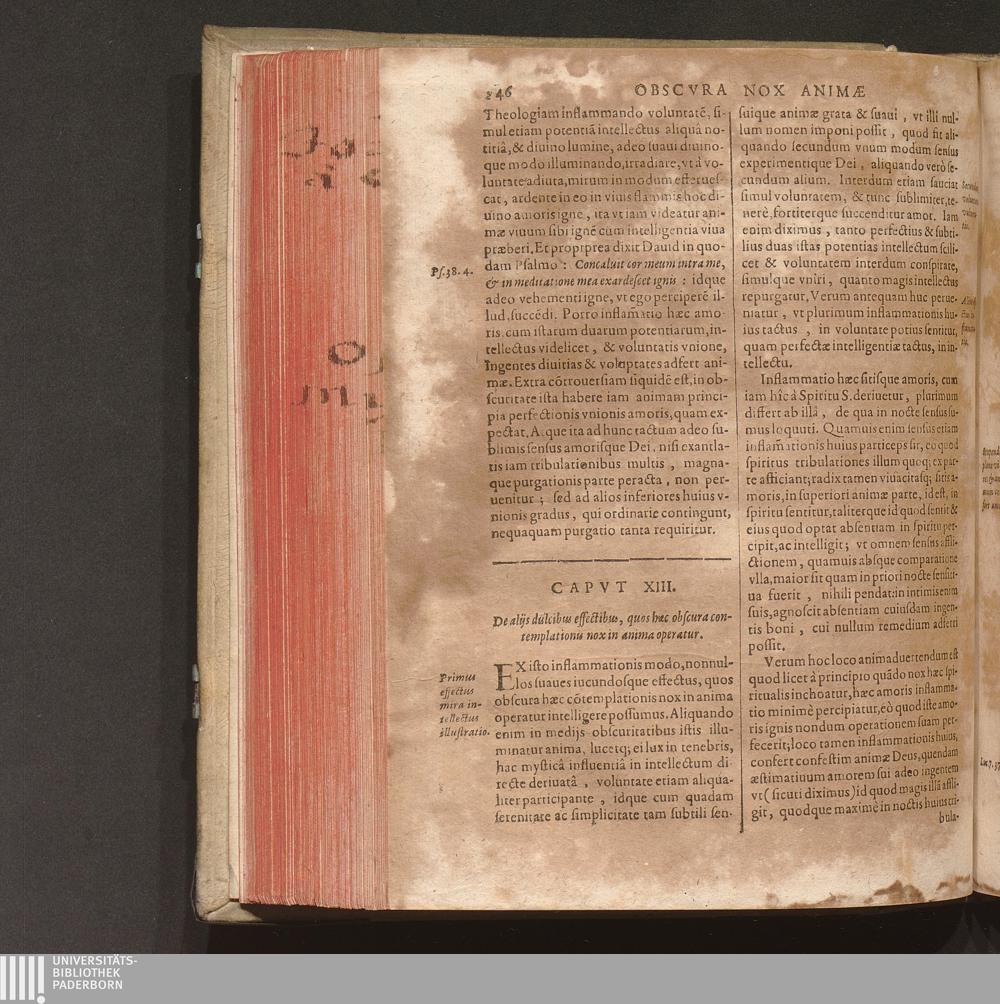 246
OBSCVRA NOX ANIMÆ
Theologiam inflammando voluntatē, si-
mul etiam potentiā intellectus aliquā no-
titiā, & diuino lumine, adeo suaui diuino-
que modo illuminando, irradiare, vt à vo-
luntate adiuta, mirum in modum efferues-
cat, ardente in eo in viuis flammis hoc di-
uino amoris igne, ita vt iam videatur ani-
mæ viuum sibi ignē cum intelligentia viua
præberi. Et proptprea dixit Dauid in quo-
dam Psalmo: Concaluit cor meum intra me,
& in meditatione mea exardescet ignis: idque
adeo vehementi igne, vt ego perciperē il-
lud, succēdi. Porro inflamatio hæc amo-
ris, cum istarum duarum potentiarum, in-
tellectus videlicet, & voluntatis vnione,
Ingentes diuitias & voluptates adfert ani-
mæ. Extra cōtrouersiam siquidē est, in ob-
scuritate ista habere iam animam princi-
pia perfectionis vnionis amoris, quam ex-
pectat. Atque ita ad hunc tactum adeo su-
blimis sensus amorisque Dei, nisi exantla-
tis iam tribulationibus multis, magna-
que purgationis parte peracta, non per-
uenitur; sed ad alios inferiores huius v-
nionis gradus, qui ordinarie contingunt,
nequaquam purgatio tanta requiritur.
Ps. 38. 4.
CAPVT XIII.
De alijs dulcibus effectibus, quos hæc obscura con-
templationis nox in anima operatur.
EX isto inflammationis modo, nonnul-
los suaues iucundosque effectus, quos
obscura hæc cōtemplationis nox in anima
operatur intelligere possumus. Aliquando
enim in medijs obscuritatibus istis illu-
minatur anima, lucetq; ei lux in tenebris,
hac mysticâ influentiâ in intellectum di-
recte deriuatâ, voluntate etiam aliqua-
liter participante, idque cum quadam
serenitate ac simplicitate tam subtili sen-
Primus
effectus
mira in-
tellectus
illustratio.
suique animæ grata & suaui, vt illi nul-
lum nomen imponi possit, quod fit ali-
quando secundum vnum modum sensus
experimentique Dei, aliquando verò se-
cundum alium. Interdum etiam sauciat
simul voluntatem, & tunc sublimiter, te-
nerè, fortiterque succenditur amor. Iam
enim diximus, tanto perfectius & subti-
lius duas istas potentias intellectum scili-
cet & voluntatem interdum conspirate,
simulque vniri, quanto magis intellectus
repurgatur. Verum antequam huc perue-
niatur, vt plurimum inflammationis hu-
ius tactus, in voluntate potius sentitur,
quam perfectæ intelligentiæ tactus, in in-
tellectu.
Inflammatio hæc sitisque amoris, cum
iam hîc à Spiritu S. deriuetur, plurimum
differt ab illâ, de qua in nocte sensus su-
mus loquuti. Quamuis enim sensus etiam
inflam̄ationis huius particeps sit, eo quod
spiritus tribulationes illum quoq; ex par-
te afficiant; radix tamen viuacitasq; sitis a-
moris, in superiori animæ parte, id est, in
spiritu sentitur, taliterque id quod sentit &
eius quod optat absentiam in spiritu per-
cipit, ac intelligit; vt omnem sensus affli-
ctionem, quamuis absque comparatione
vlla, maior sit quam in priori nocte sensiti-
ua fuerit, nihili pendat: in intimis enim
suis, agnoscit absentiam cuiusdam ingen-
tis boni, cui nullum remedium adferri
possit.
Verum hoc loco animaduertendum est
quod licet à principio quādo nox hæc spi-
ritualis inchoatur, hæc amoris inflamma-
tio minimè percipiatur, eò quod iste amo-
ris ignis nondum operationem suam per-
fecerit; loco tamen inflammationis huius,
confert confestim animæ Deus, quendam
æstimatiuum amorem sui adeo ingentem
vt (sicuti diximus) id quod magis illā affli-
git, quodque maximè in noctis huius tri-
bula-
Luc. 7. 37
UNIVERSITÄTS-
BIBLIOTHEK
PADERBORN